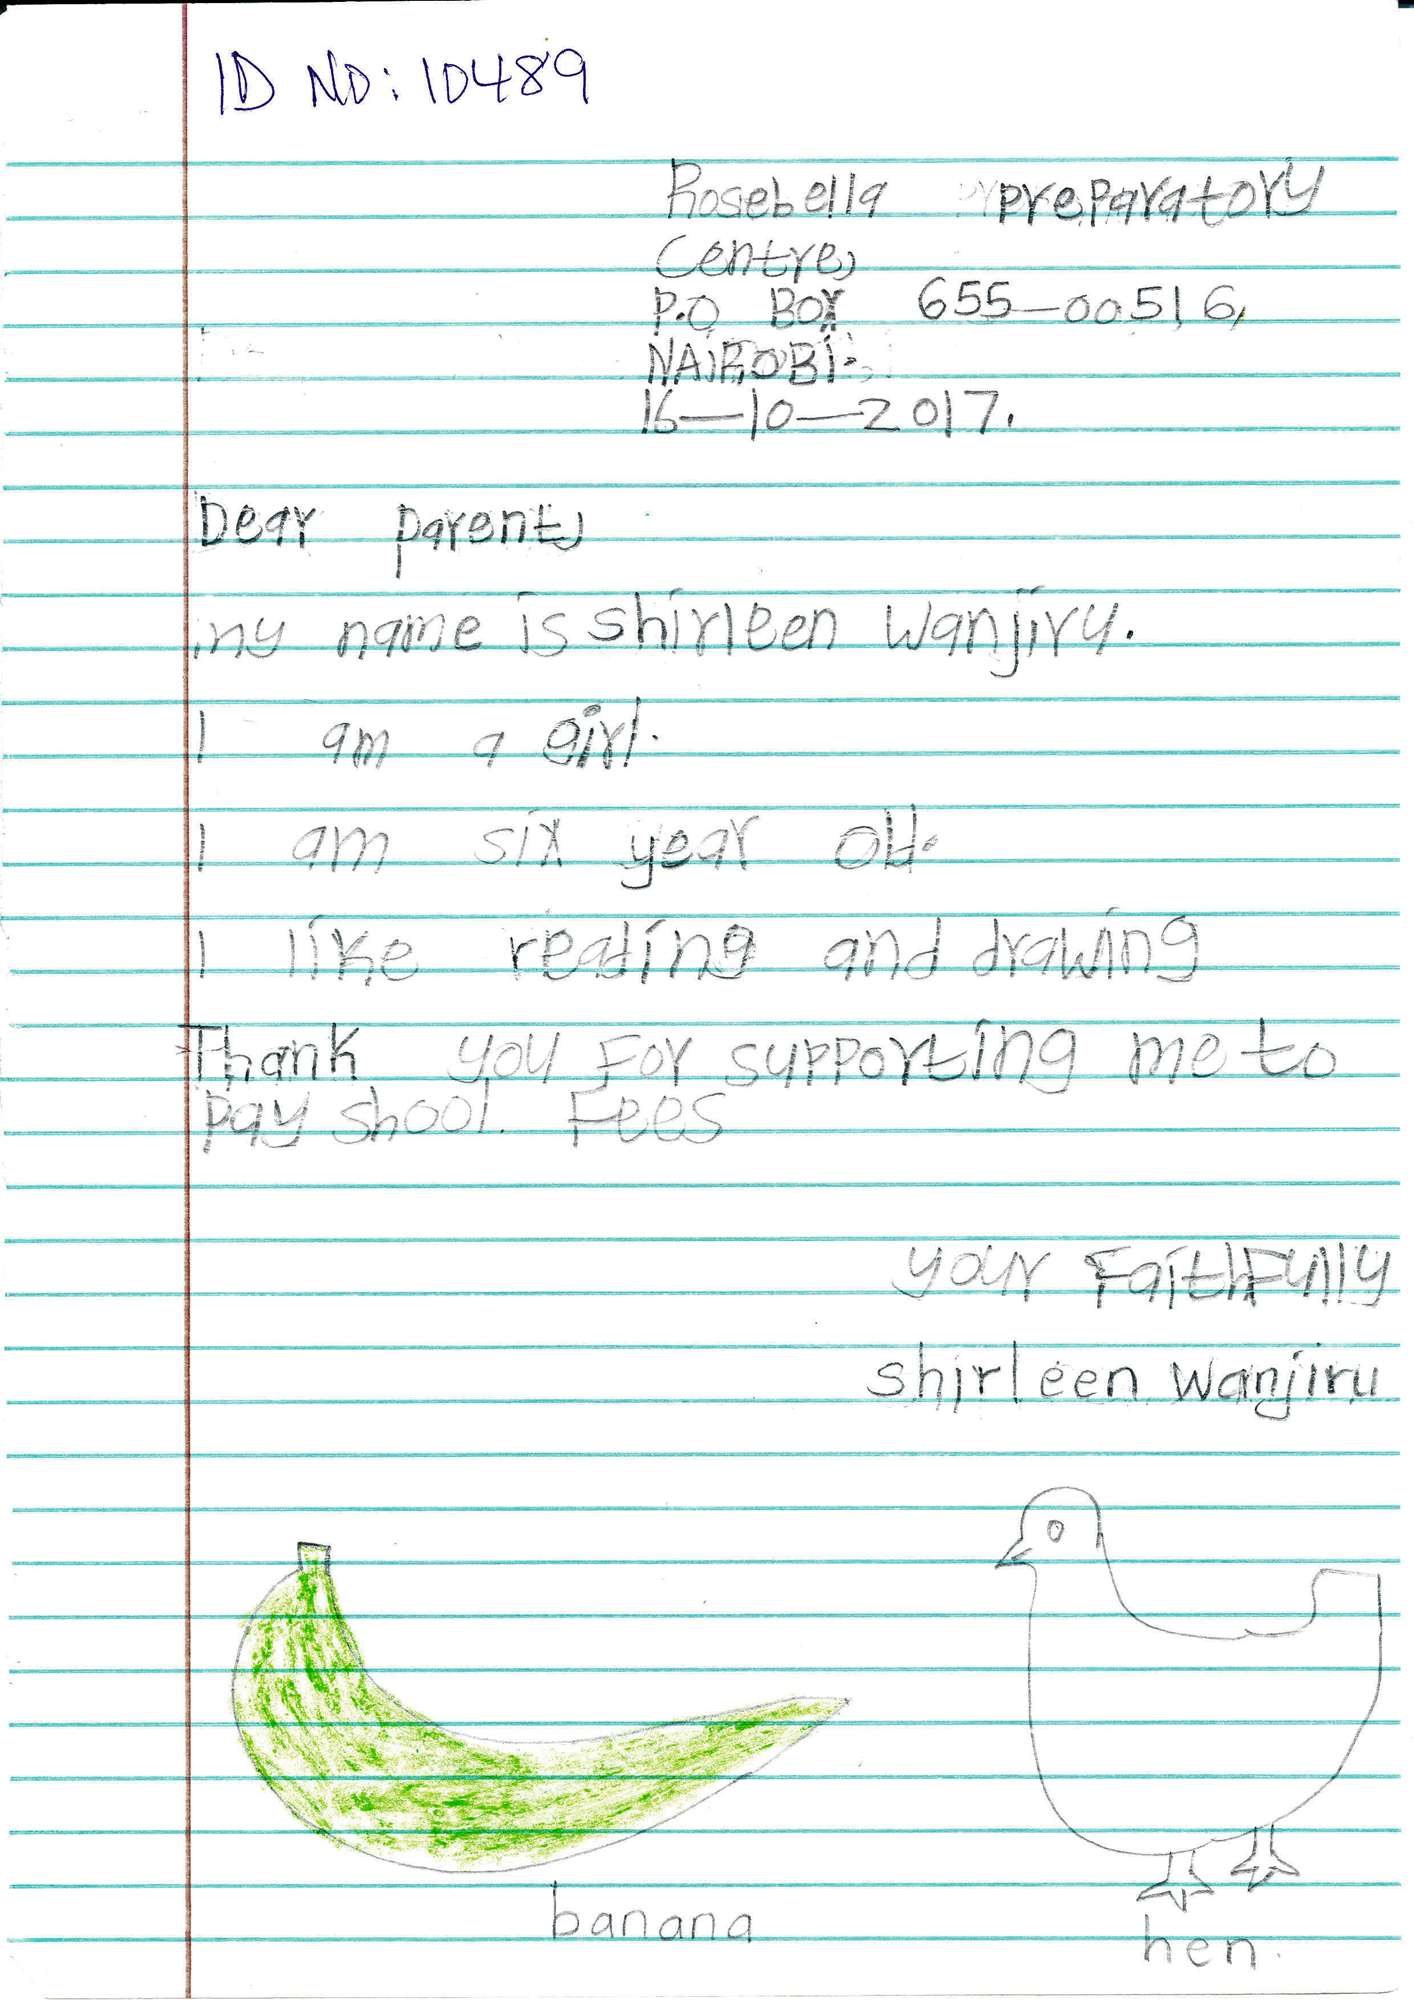 ID NO: 10489
Rosebella preparatory
Centre,
P.O BOX 655-00516,
NAIROBI.
16-10-2017.
Dear parent,
my name is shirleen wanjiru.
I am a girl.
I am six year old.
I like reading and drawing
Thank you For supporting me to
pay shool. Fees
your FaithFully
shirleen wanjiru
banana
hen.